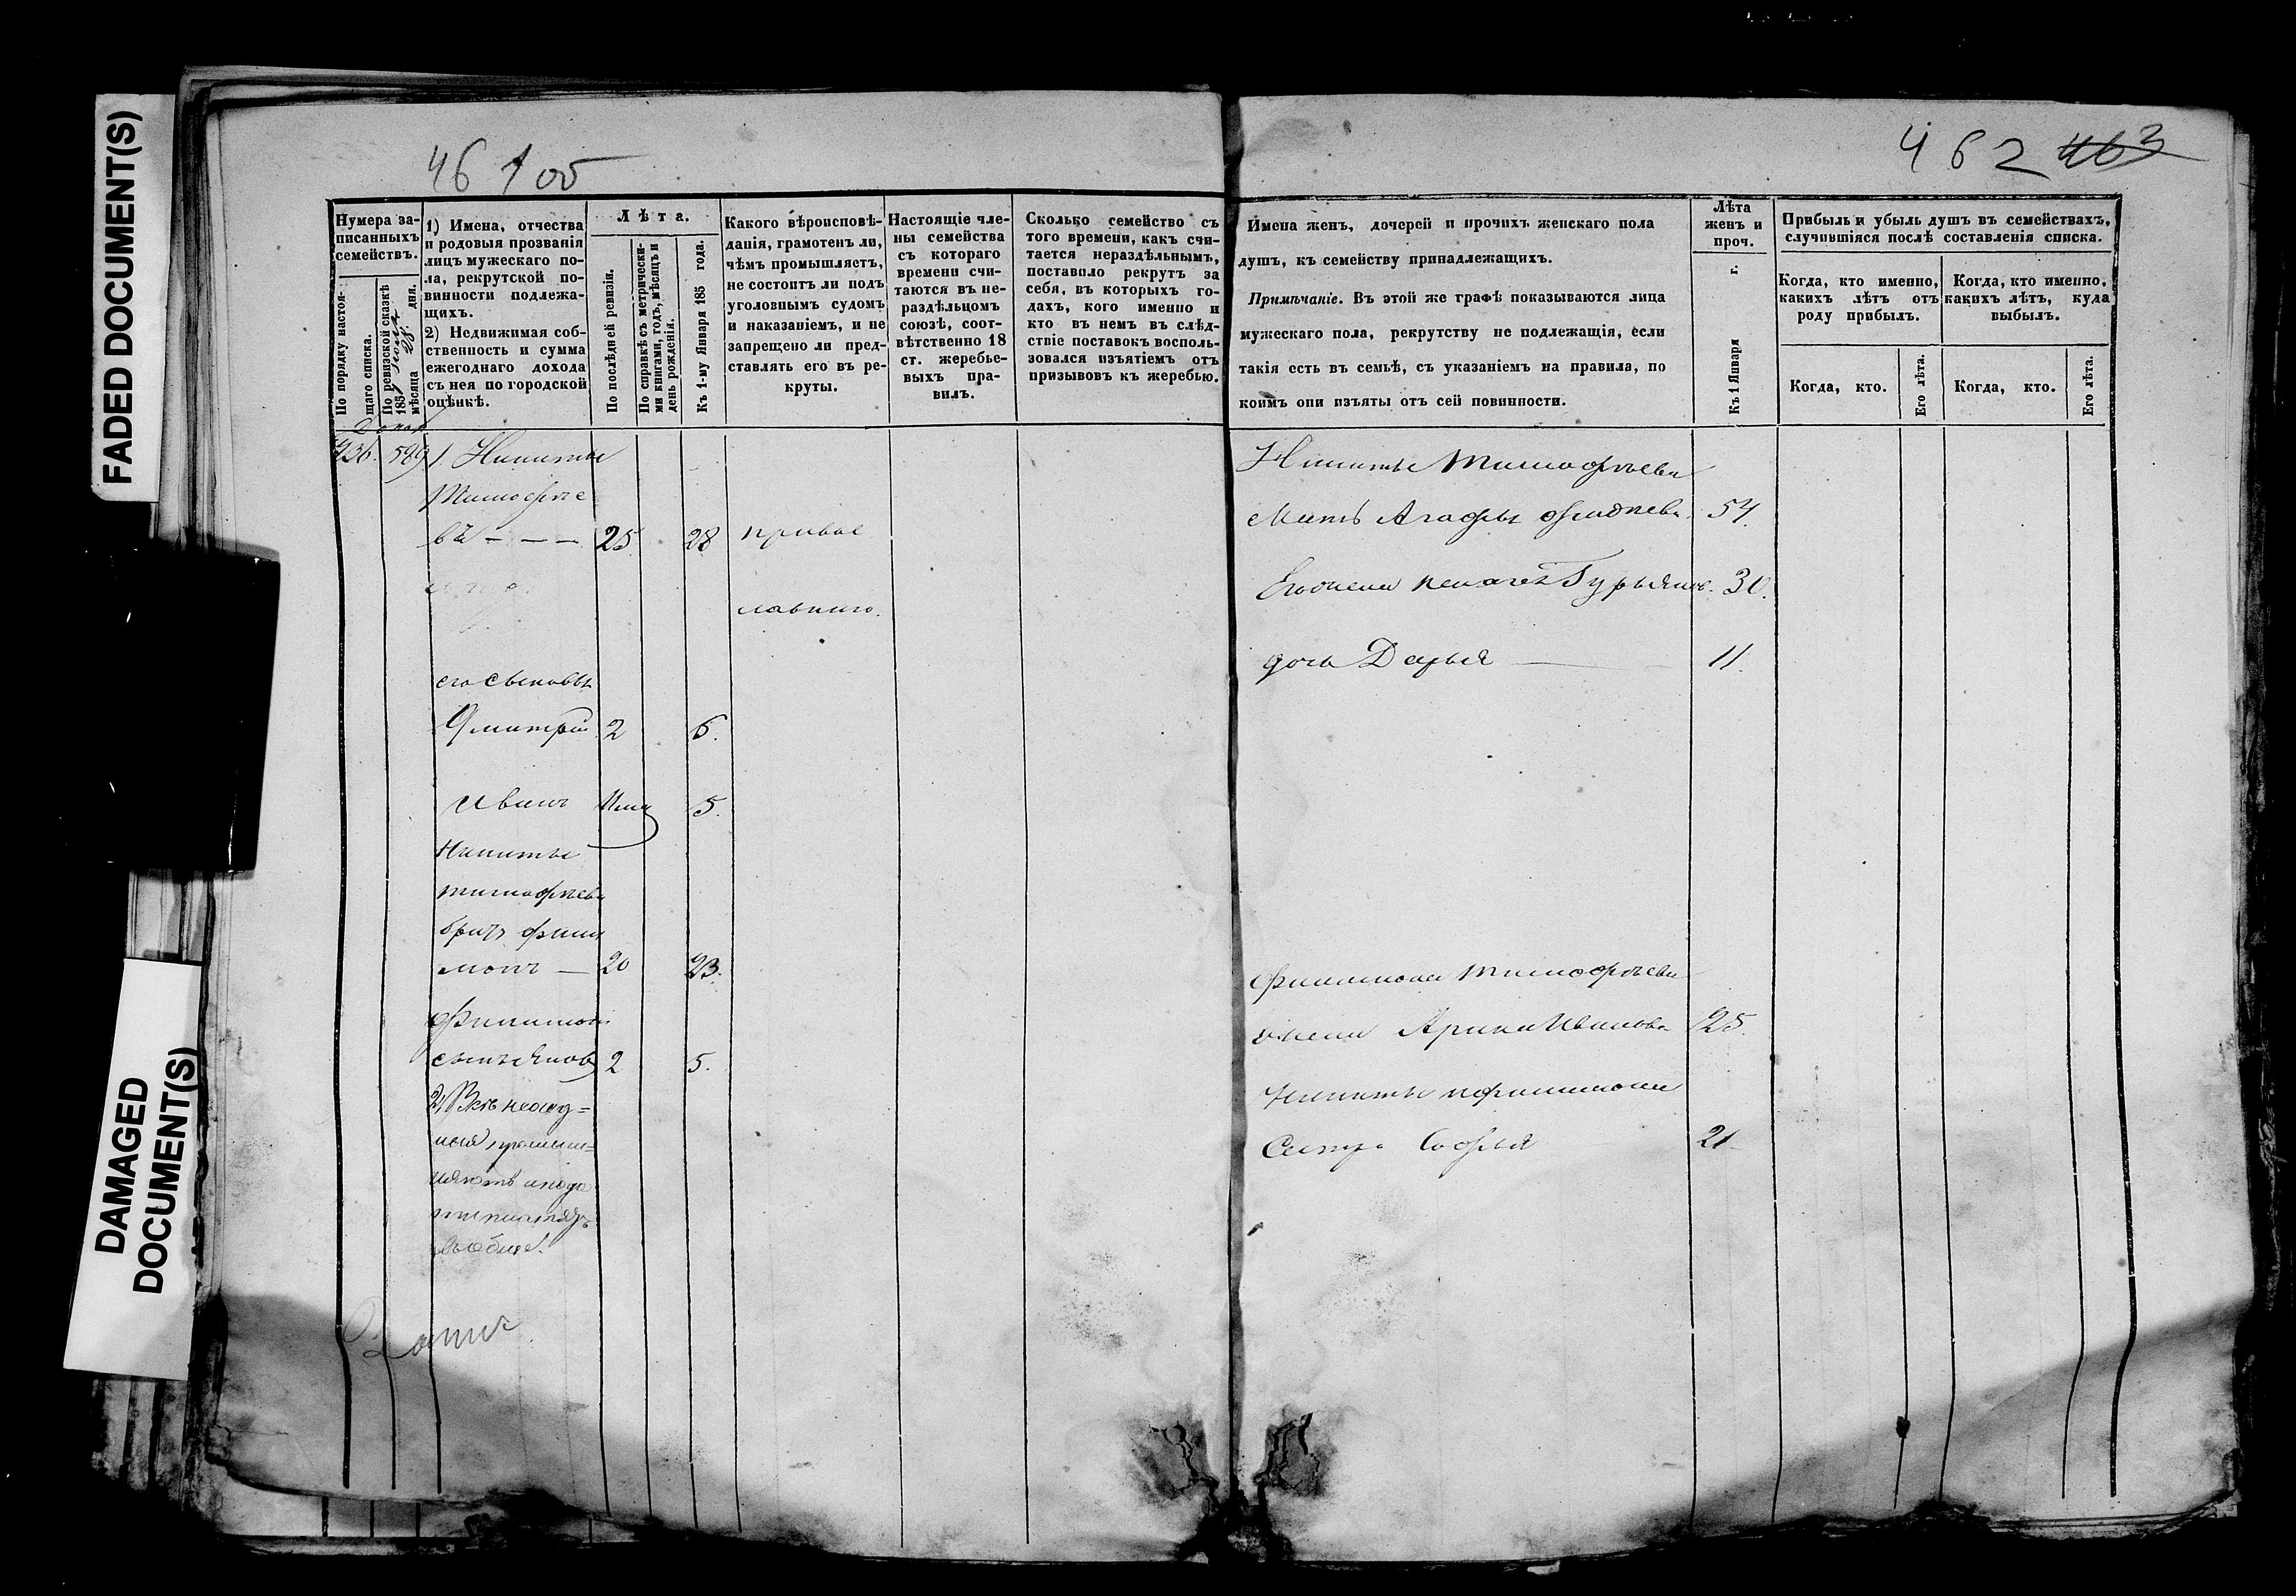 FADED DOCUMENT(S)
DAMAGED
DOCUMENT(S)
46 100
Нумера за-
писанныхъ
семействъ.
По порядку настоя-
щаго списка.
По ревизской сказкѣ
185 мѣсяца 28 дня.
1) Имена, отчества
и родовыя прозванія
лицъ мужескаго по-
ла, рекрутской по-
винности подлежа-
щихъ.
2) Недвижимая соб-
ственность и сумма
ежегоднаго дохода
съ нея по городской
оцѣнкѣ.
Лѣта.
По послѣдней ревизіи.
По справкѣ съ метрически-
ми книгами, годъ, мѣсяцъ и
день рожденія.
Къ 1-му Января 185 года.
Какого вѣроисповѣ-
данія, грамотенъ ли,
чѣмъ промышляетъ,
не состоитъ ли подъ
уголовнымъ судомъ
и наказаніемъ, и не
запрещено ли пред-
ставлять его въ ре-
круты.
Настоящіе чле-
ны семейства
съ котораго
времени счи-
таются въ не-
раздѣльномъ
союзѣ, соот-
вѣтственно 18
ст. жеребье-
выхъ пра-
вилъ.
Сколько семейство съ
того времени, какъ счи-
тается нераздѣльнымъ,
поставило рекрутъ за
себя, въ которыхъ го-
дахъ, кого именно и
кто въ немъ въ слѣд-
ствіе поставокъ восполь-
зовался изъятіемъ отъ
призывовъ къ жеребью.
436. 589 1. Никита
Тимофѣе
въ - - - 25 28 право
славнаго.
его сыновья
Дмитрій 2 6.
Иванъ 5.
Никиты
Тимофѣева
братъ Фили
монъ — 20 23.
Филимона
сынъ Яковъ 2 5.
2)
вообще.
462 463
Имена женъ, дочерей и прочихъ женскаго пола
душъ, къ семейству принадлежащихъ.
Примѣчаніе. Въ этой же графѣ показываются лица
мужескаго пола, рекрутству не подлежащія, если
такія есть въ семьѣ, съ указаніемъ на правила, по
коимъ они изъяты отъ сей повинности.
Лѣта
женъ и
проч.
Къ 1 Января г.
Прибыль и убыль душъ въ семействахъ,
случившіяся послѣ составленія списка.
Когда, кто именно,
какихъ лѣтъ отъ
роду прибылъ.
Когда, кто именно,
какихъ лѣтъ, куда
выбылъ.
Когда, кто.
Его лѣта.
Когда, кто.
Его лѣта.
Никиты Тимофѣева
Мать Агафья 54.
Его жена Пелагея Гурьянов. 30.
дочь Дарья 11.
Филимона Тимофѣева
жена Арина Иванова 25.
Никиты и Филимона
Сестра Софья 21